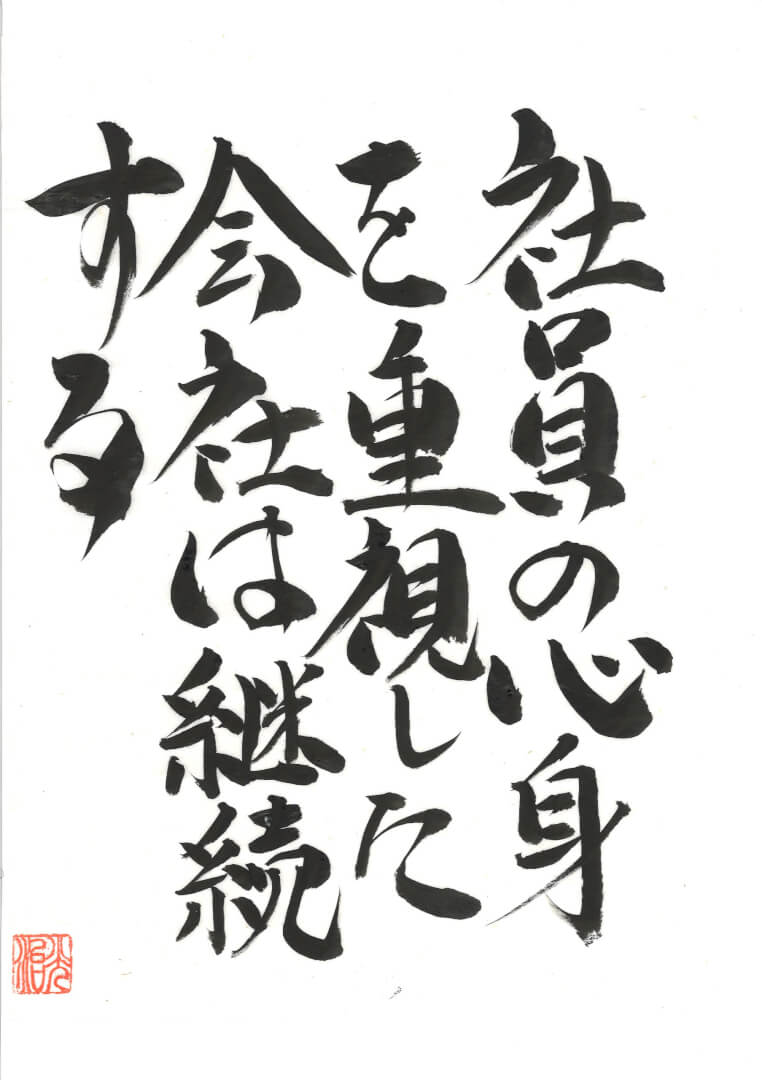 社員の心身
を重視した
会社は継続
する